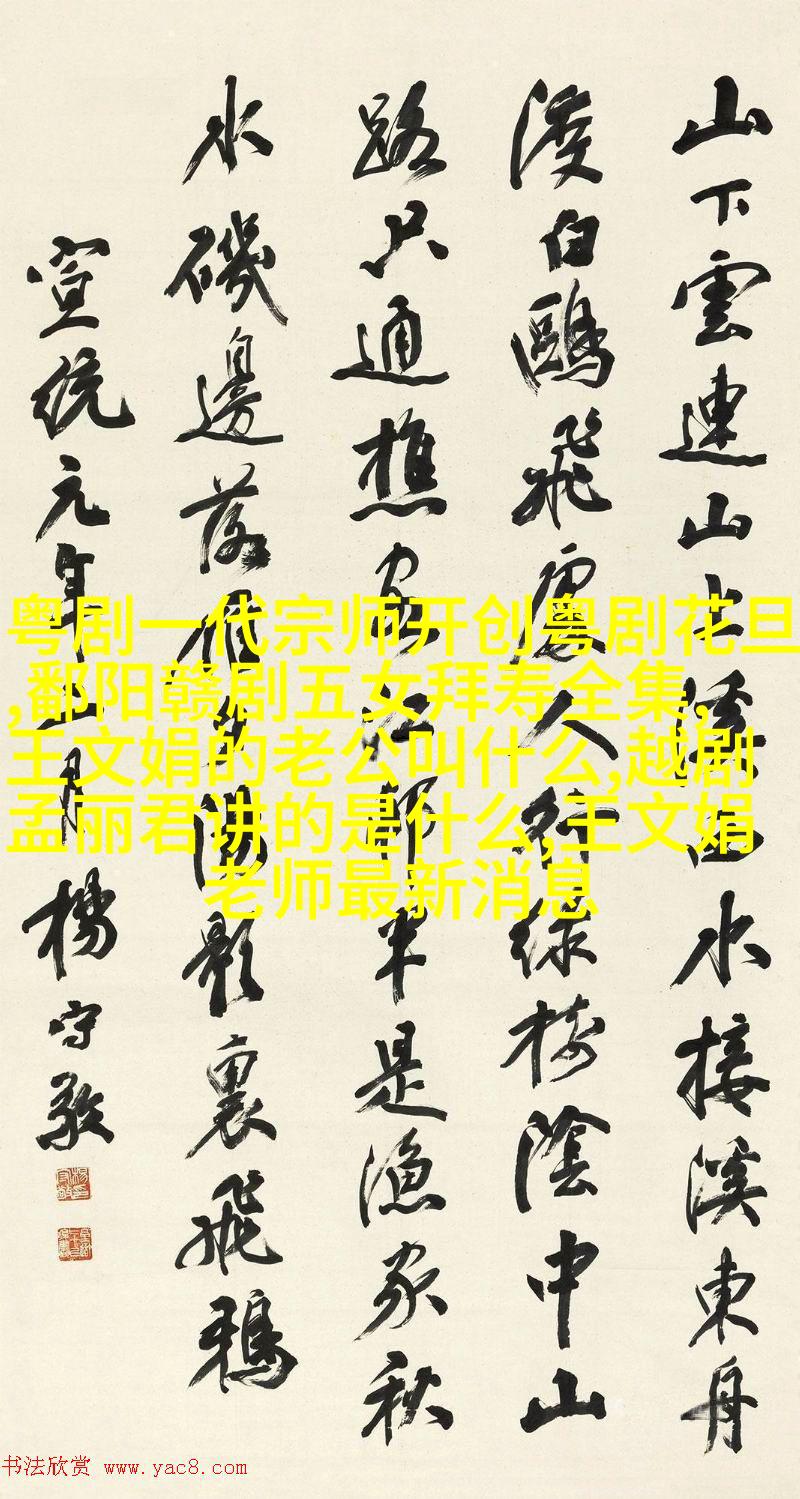 山下雲連山上溪西水接溪東舟
渡白鷗飛處人行綠樹陰中山
路只通樵客江邨半是漁家秋
水磯邊落雁夕陽影裏飛鴉
宣統元年月楊守敬
粤剧一代宗师开创粤剧花旦
,鄱阳赣剧五女拜寿全集,
王文娟的老公叫什么,越剧
孟丽君讲的是什么,王文娟
老师最新消息
书法欣赏 www.yac8.com